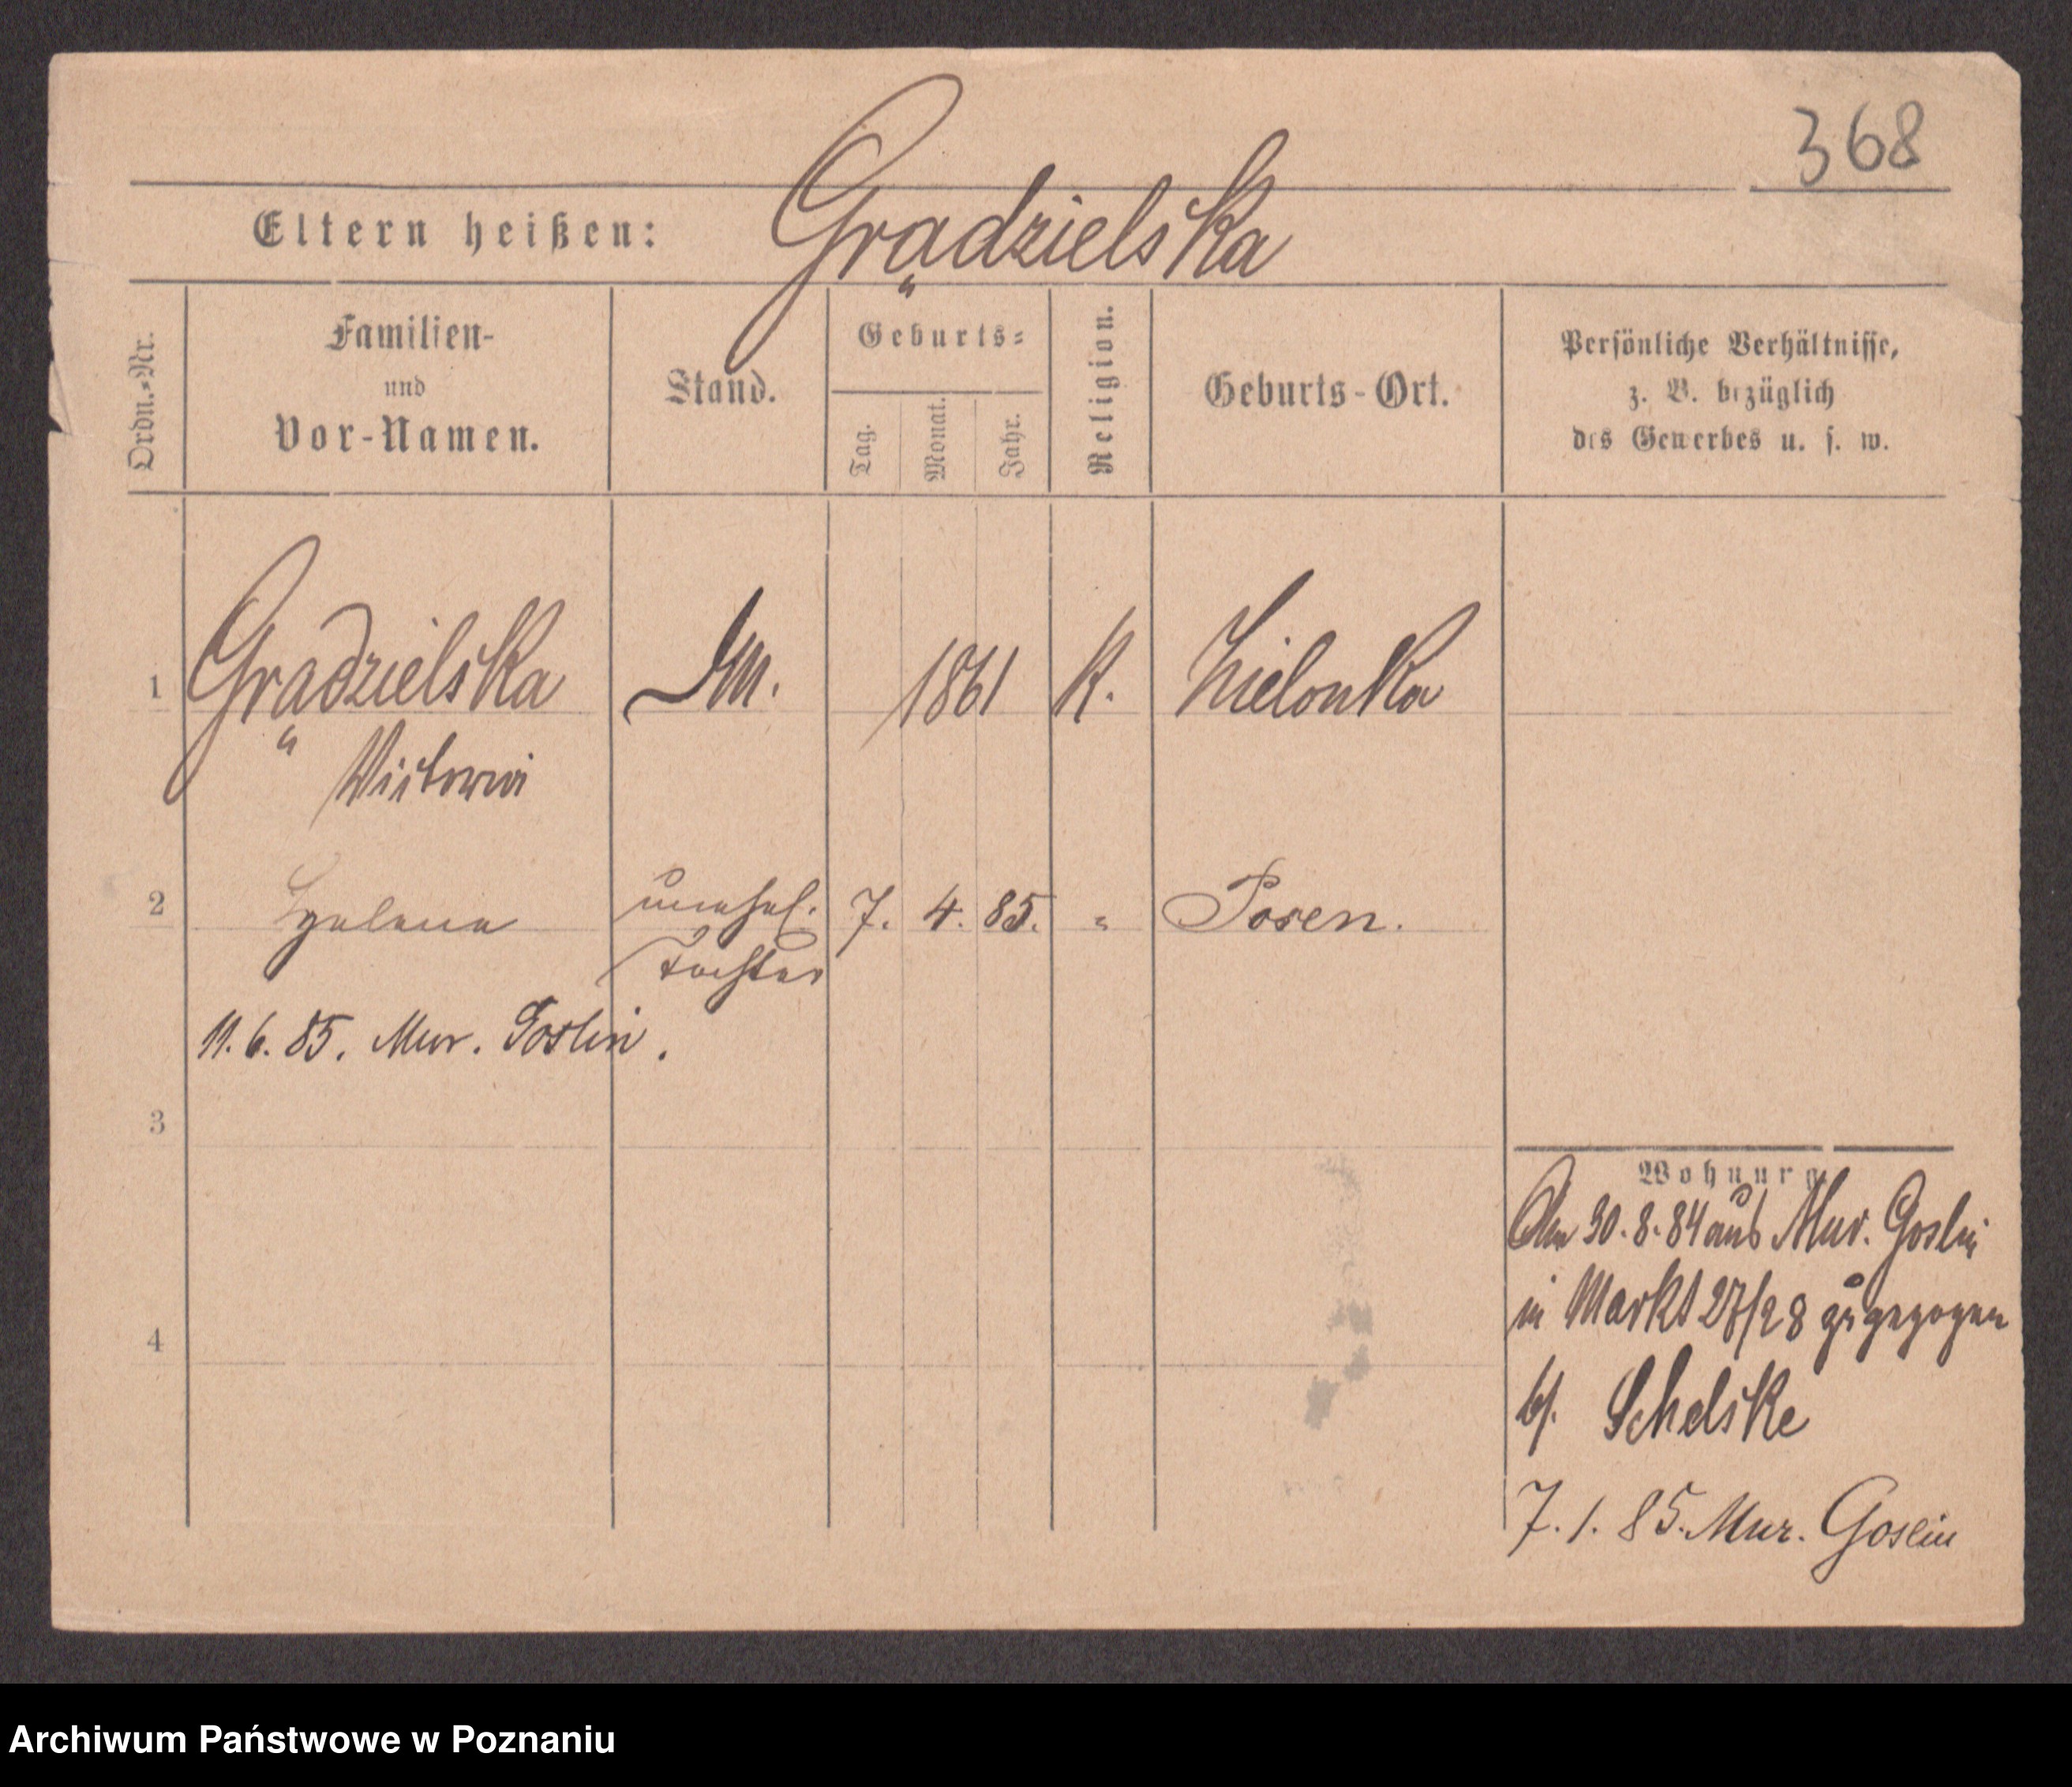 368
Eltern heißen: Grądzielska
Ordn.-Nr.
Familien-
und
Vor-Namen.
Stand.
Geburts-
Tag.
Monat.
Jahr.
Religion.
Geburts-Ort.
Persönliche Verhältnisse,
z. B. bezüglich
des Gewerbes u. s. w.
1 Grądzielska 1861 K. Zielonka
2 Helena unehel. 7. 4. 85. " Posen.
Tochter
11. 6. 85. Mur. Goslin.
3
Wohnung
Am 30. 8. 84 aus Mur. Goslin
in Markt 27/28 zugezogen
4
b/. Schelske
7. 1. 85. Mur. Goslin
Archiwum Państwowe w Poznaniu